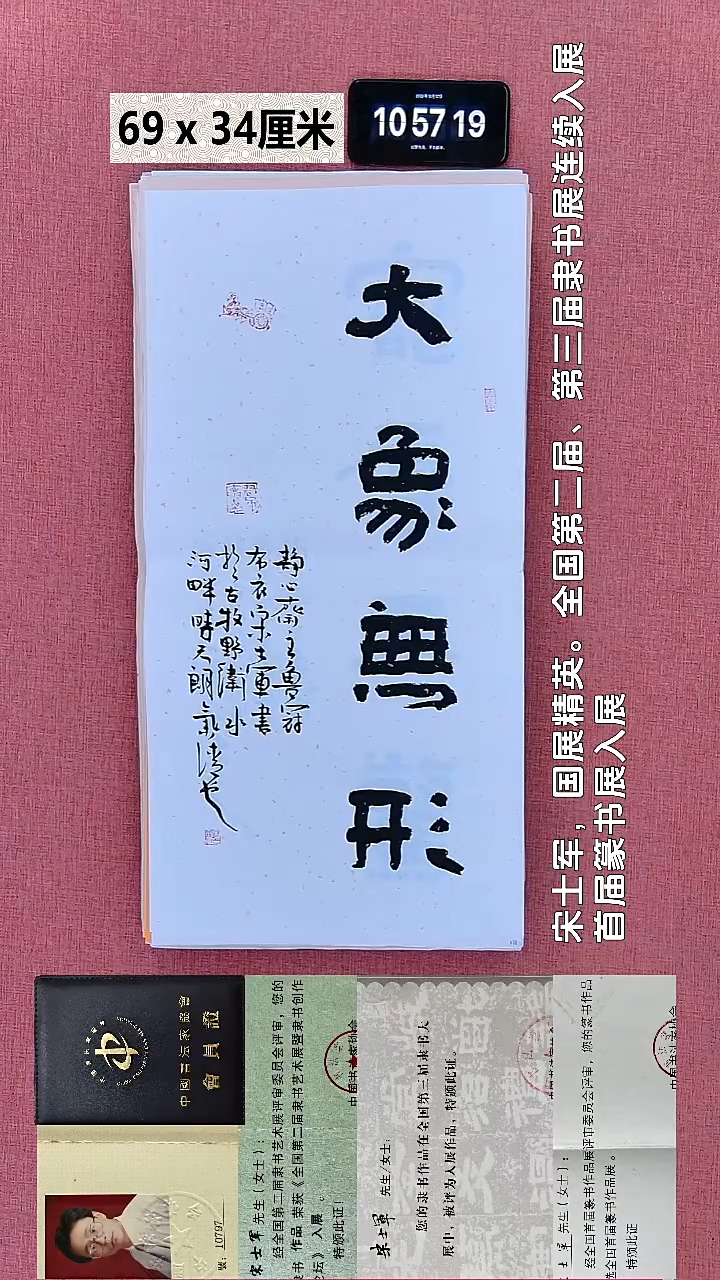 69 x 34厘米
10 57 19
大象無形
静心斋主魯冠
布衣宋士軍書
於古牧野衛水
河畔時天朗氣清也
宋士军，国展精英。全国第二届、第三届隶书展连续入展
首届篆书展入展
中國書法家協會
會員證
號：10797
宋士軍 先生（女士）：
经全国第二届隶书艺术展评审委员会评审，您的
作品 荣获《全国第二届隶书艺术展暨隶书创作
论坛》入展 。
特颁此证！
宋士軍 先生/女士：
您的隶书作品在全国第三届隶书大
展中，被评为入展作品，特颁此证。
士军 先生（女士）：
经全国首届篆书作品展评审委员会评审，您的篆书作品
全国首届篆书作品展。
特颁此证